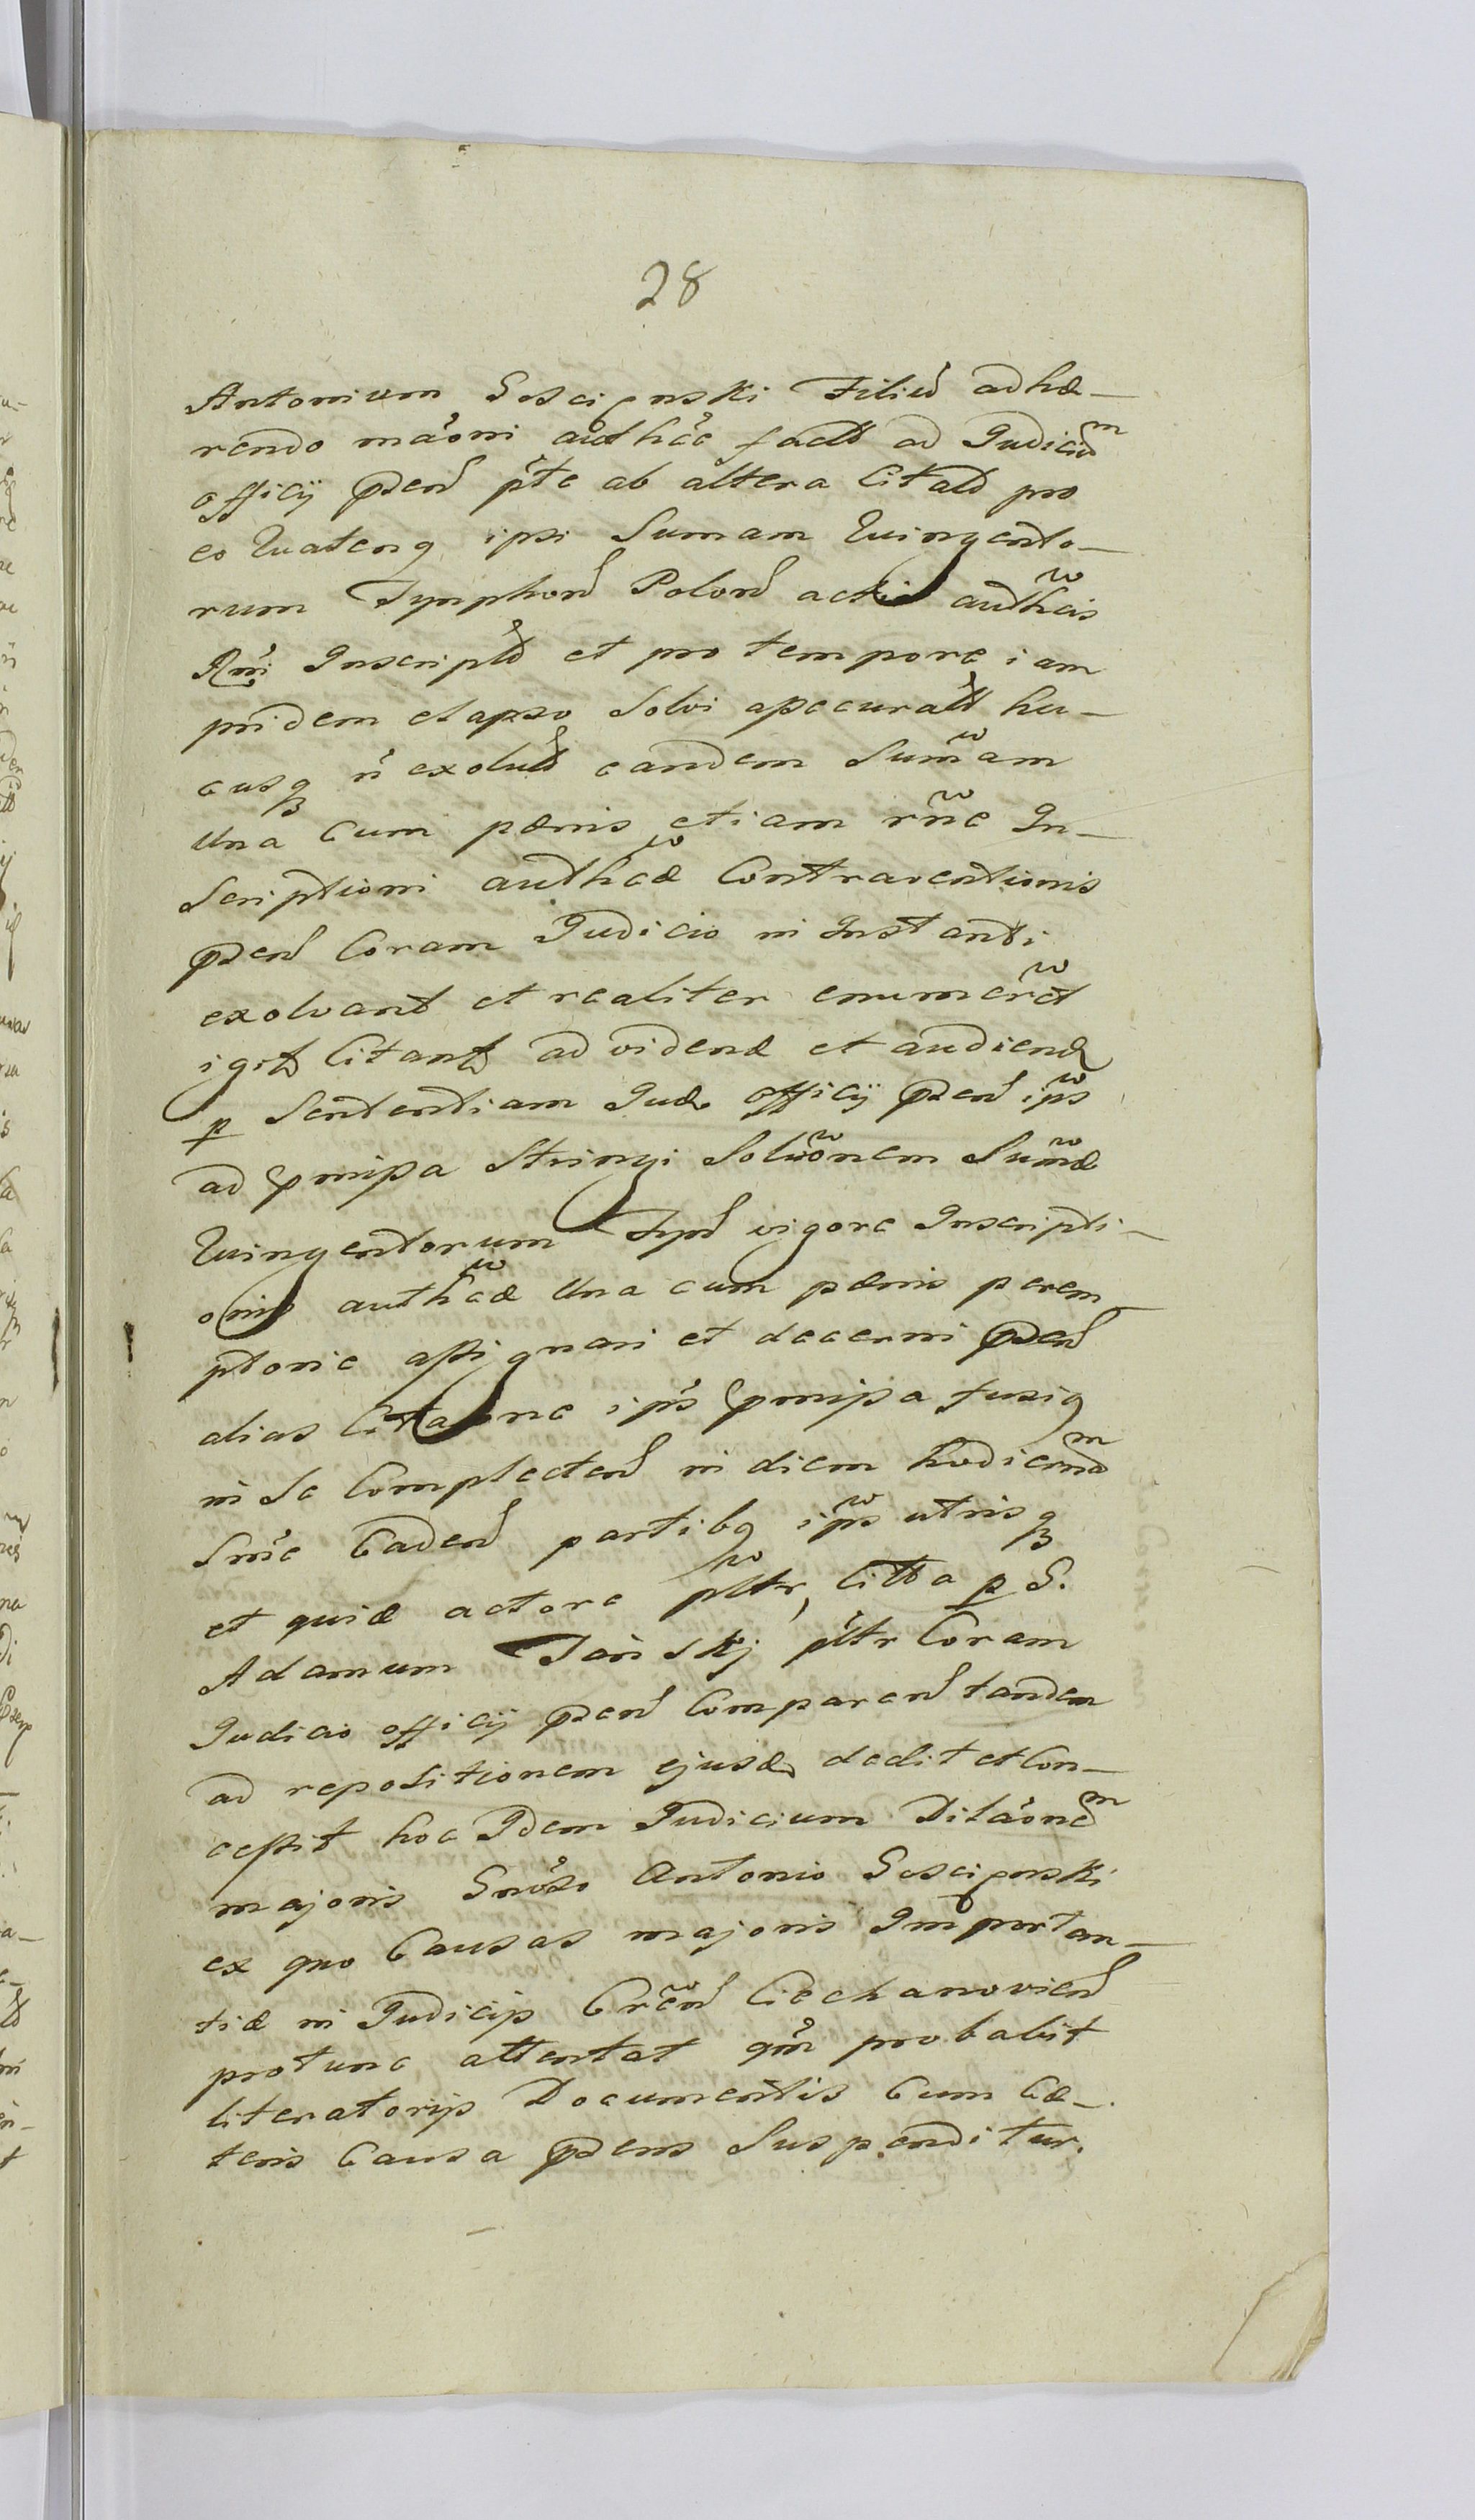 28
Antonium Goscięnski Filiū adhæ-
rendo maōni authcæ factæ ad Judiciūm
officij præsen pte ab altera Citatæ pro
eo Quatenq ipsi Sumam Quingento-
rum Tynphon Polon actis authcis
Inscriptā et pro tempore iam
pridem elapso Solvi assecuratā hu-
cusq n̄ exolutā eandem Sumam
Una Cum pænis etiam rne In-
scriptioni authcæ Contraventionis
præsen Coram Judicio in Instanti
exolvant et realiter enumerēt
igitr Citantr ad videnđ et audienđ
p Sententiam Jud officij præsen ips
ad præmissa Stringi Soluōnem Sumæ
Quingentorum Tyn vigore Inscripti-
onis authcæ Una cum pænis perem-
ptorie assignari et decerni præsen
alias Citaōne ips præmissa fusiq
in Se Complecten in diem hodiernūm
Sme Caden partibq ips utrisq
et quidē actore pltr, Citta p G.
Adamum Janskj pltr Coram
Judicio officij præsen Comparen tandem
ad repositionem ejusd dedit et Con-
cessit hoc Idem Judicium Dilaōnem
majoris Gnoso Antonio Goscięnski
ex quo Causas majoris Importan-
tiæ in Judicijs Cren Ciechanovien
protunc attentat qm probabit
literatorijs Documentis Cum Cæ-
teris Causa præsens Suspenditur.